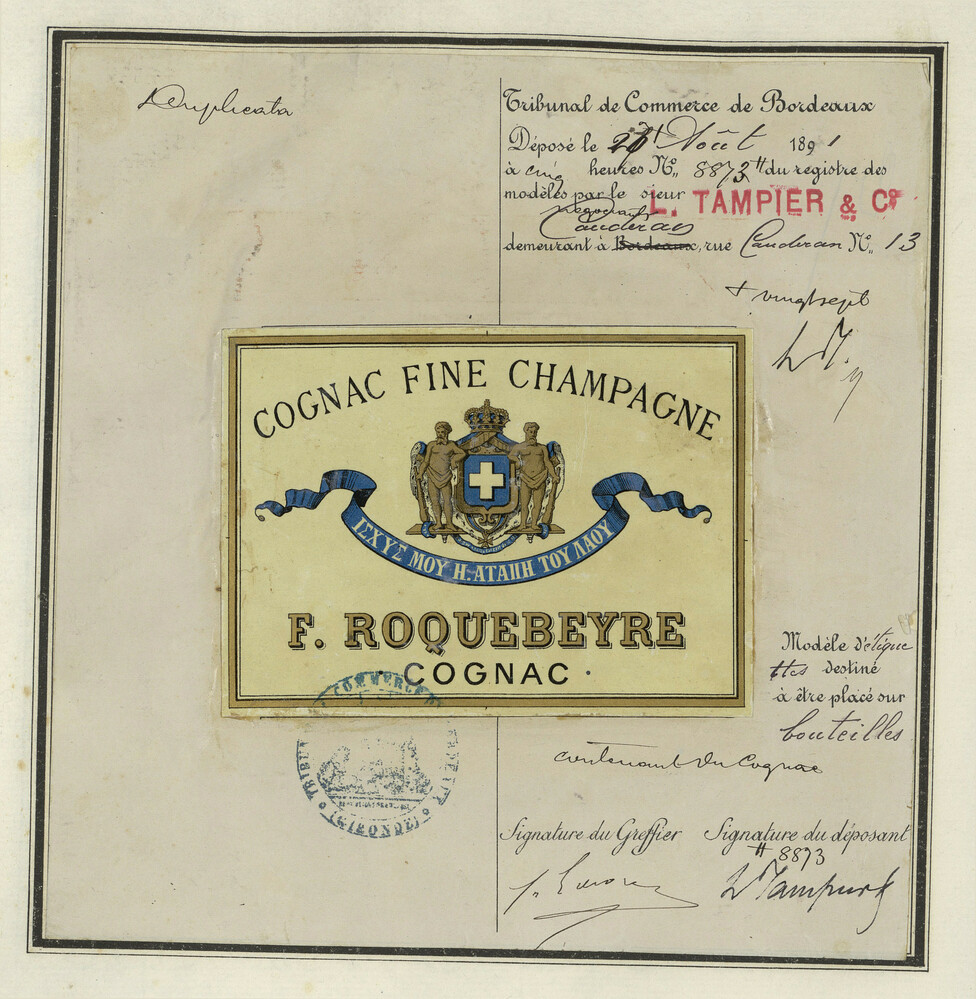 Duplicata
Tribunal de Commerce de Bordeaux
Déposé le 27 + Août 1891
à cinq heures N° 8873 # du registre des
modèles par le sieur L. TAMPIER & Cie
negociant
Cauderan
demeurant à Bordeaux, rue Cauderan N° 13
+ vingt sept
LT.
COGNAC FINE CHAMPAGNE
ΙΣΧΥΣ ΜΟΥ Η.ΑΤΑΠΗ ΤΟΥ ΛΑΟΥ
F. ROQUEBEYRE
· COGNAC ·
Modèle d'étique
ttes destiné
à être placé sur
bouteilles
contenant du Cognac
TRIBUNAL DE COMMERCE DE BORDEAUX
(GIRONDE)
Signature du Greffier Signature du déposant
# 8873
L Tampier